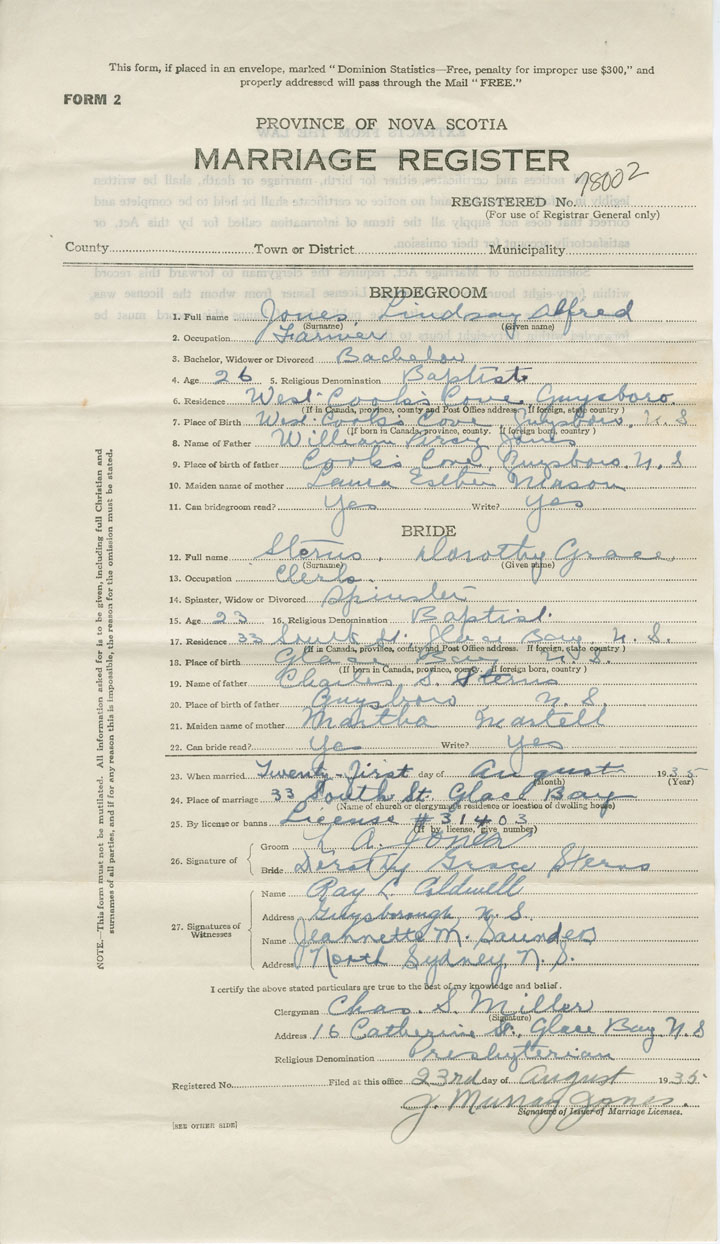 This form, if placed in an envelope, marked "Dominion Statistics—Free, penalty for improper use $300," and
properly addressed will pass through the Mail "FREE."
FORM 2
PROVINCE OF NOVA SCOTIA
MARRIAGE REGISTER
REGISTERED No. 78002
(For use of Registrar General only)
County Town or District Municipality
BRIDEGROOM
1. Full name Jones, Lindsay Alfred
(Surname) (Given name)
2. Occupation Farmer
3. Bachelor, Widower or Divorced Bachelor
4. Age 26 5. Religious Denomination Baptist
6. Residence West Cook's Cove, Guysboro.
(If in Canada, province, county and Post Office address. If foreign, state country)
7. Place of Birth West Cook's Cove, Guysboro, N. S.
(If born in Canada, province, county. If foreign born, country)
8. Name of Father William Jones
9. Place of birth of father Cook's Cove, Guysboro, N. S
10. Maiden name of mother Laura Esther Mason
11. Can bridegroom read? Yes Write? Yes
BRIDE
12. Full name Sterns, Dorothy Grace
(Surname) (Given name)
13. Occupation Clerk
14. Spinster, Widow or Divorced Spinster
15. Age 23 16. Religious Denomination Baptist.
17. Residence 33 South St. Glace Bay, N. S.
(If in Canada, province, county and Post Office address. If foreign, state country)
18. Place of birth Glace Bay N. S.
(If born in Canada, province, county. If foreign born, country)
19. Name of father Charles S. Sterns
20. Place of birth of father Guysboro N. S.
21. Maiden name of mother Martha Martell
22. Can bride read? Yes Write? Yes
23. When married Twenty-first day of August 1935
(Month) (Year)
24. Place of marriage 33 South St. Glace Bay
(Name of church or clergyman's residence or location of dwelling house)
25. By license or banns License #31403
(If by license, give number)
26. Signature of
Groom L. A. Jones
Bride Dorothy Grace Sterns
27. Signatures of Witnesses
Name Ray L. Caldwell
Address Guysborough, N. S.
Name Jeannette M. Saunders
Address North Sydney, N. S.
I certify the above stated particulars are true to the best of my knowledge and belief.
Clergyman Chas. S. Miller
(Signature)
Address 16 Catherine St, Glace Bay, N. S
Religious Denomination Presbyterian
Registered No. Filed at this office 23rd day of August 1935
J. Murray Jones.
Signature of Issuer of Marriage Licenses.
[SEE OTHER SIDE]
NOTE.—This form must not be mutilated. All information asked for is to be given, including full Christian and
surnames of all parties, and if for any reason this is impossible, the reason for the omission must be stated.